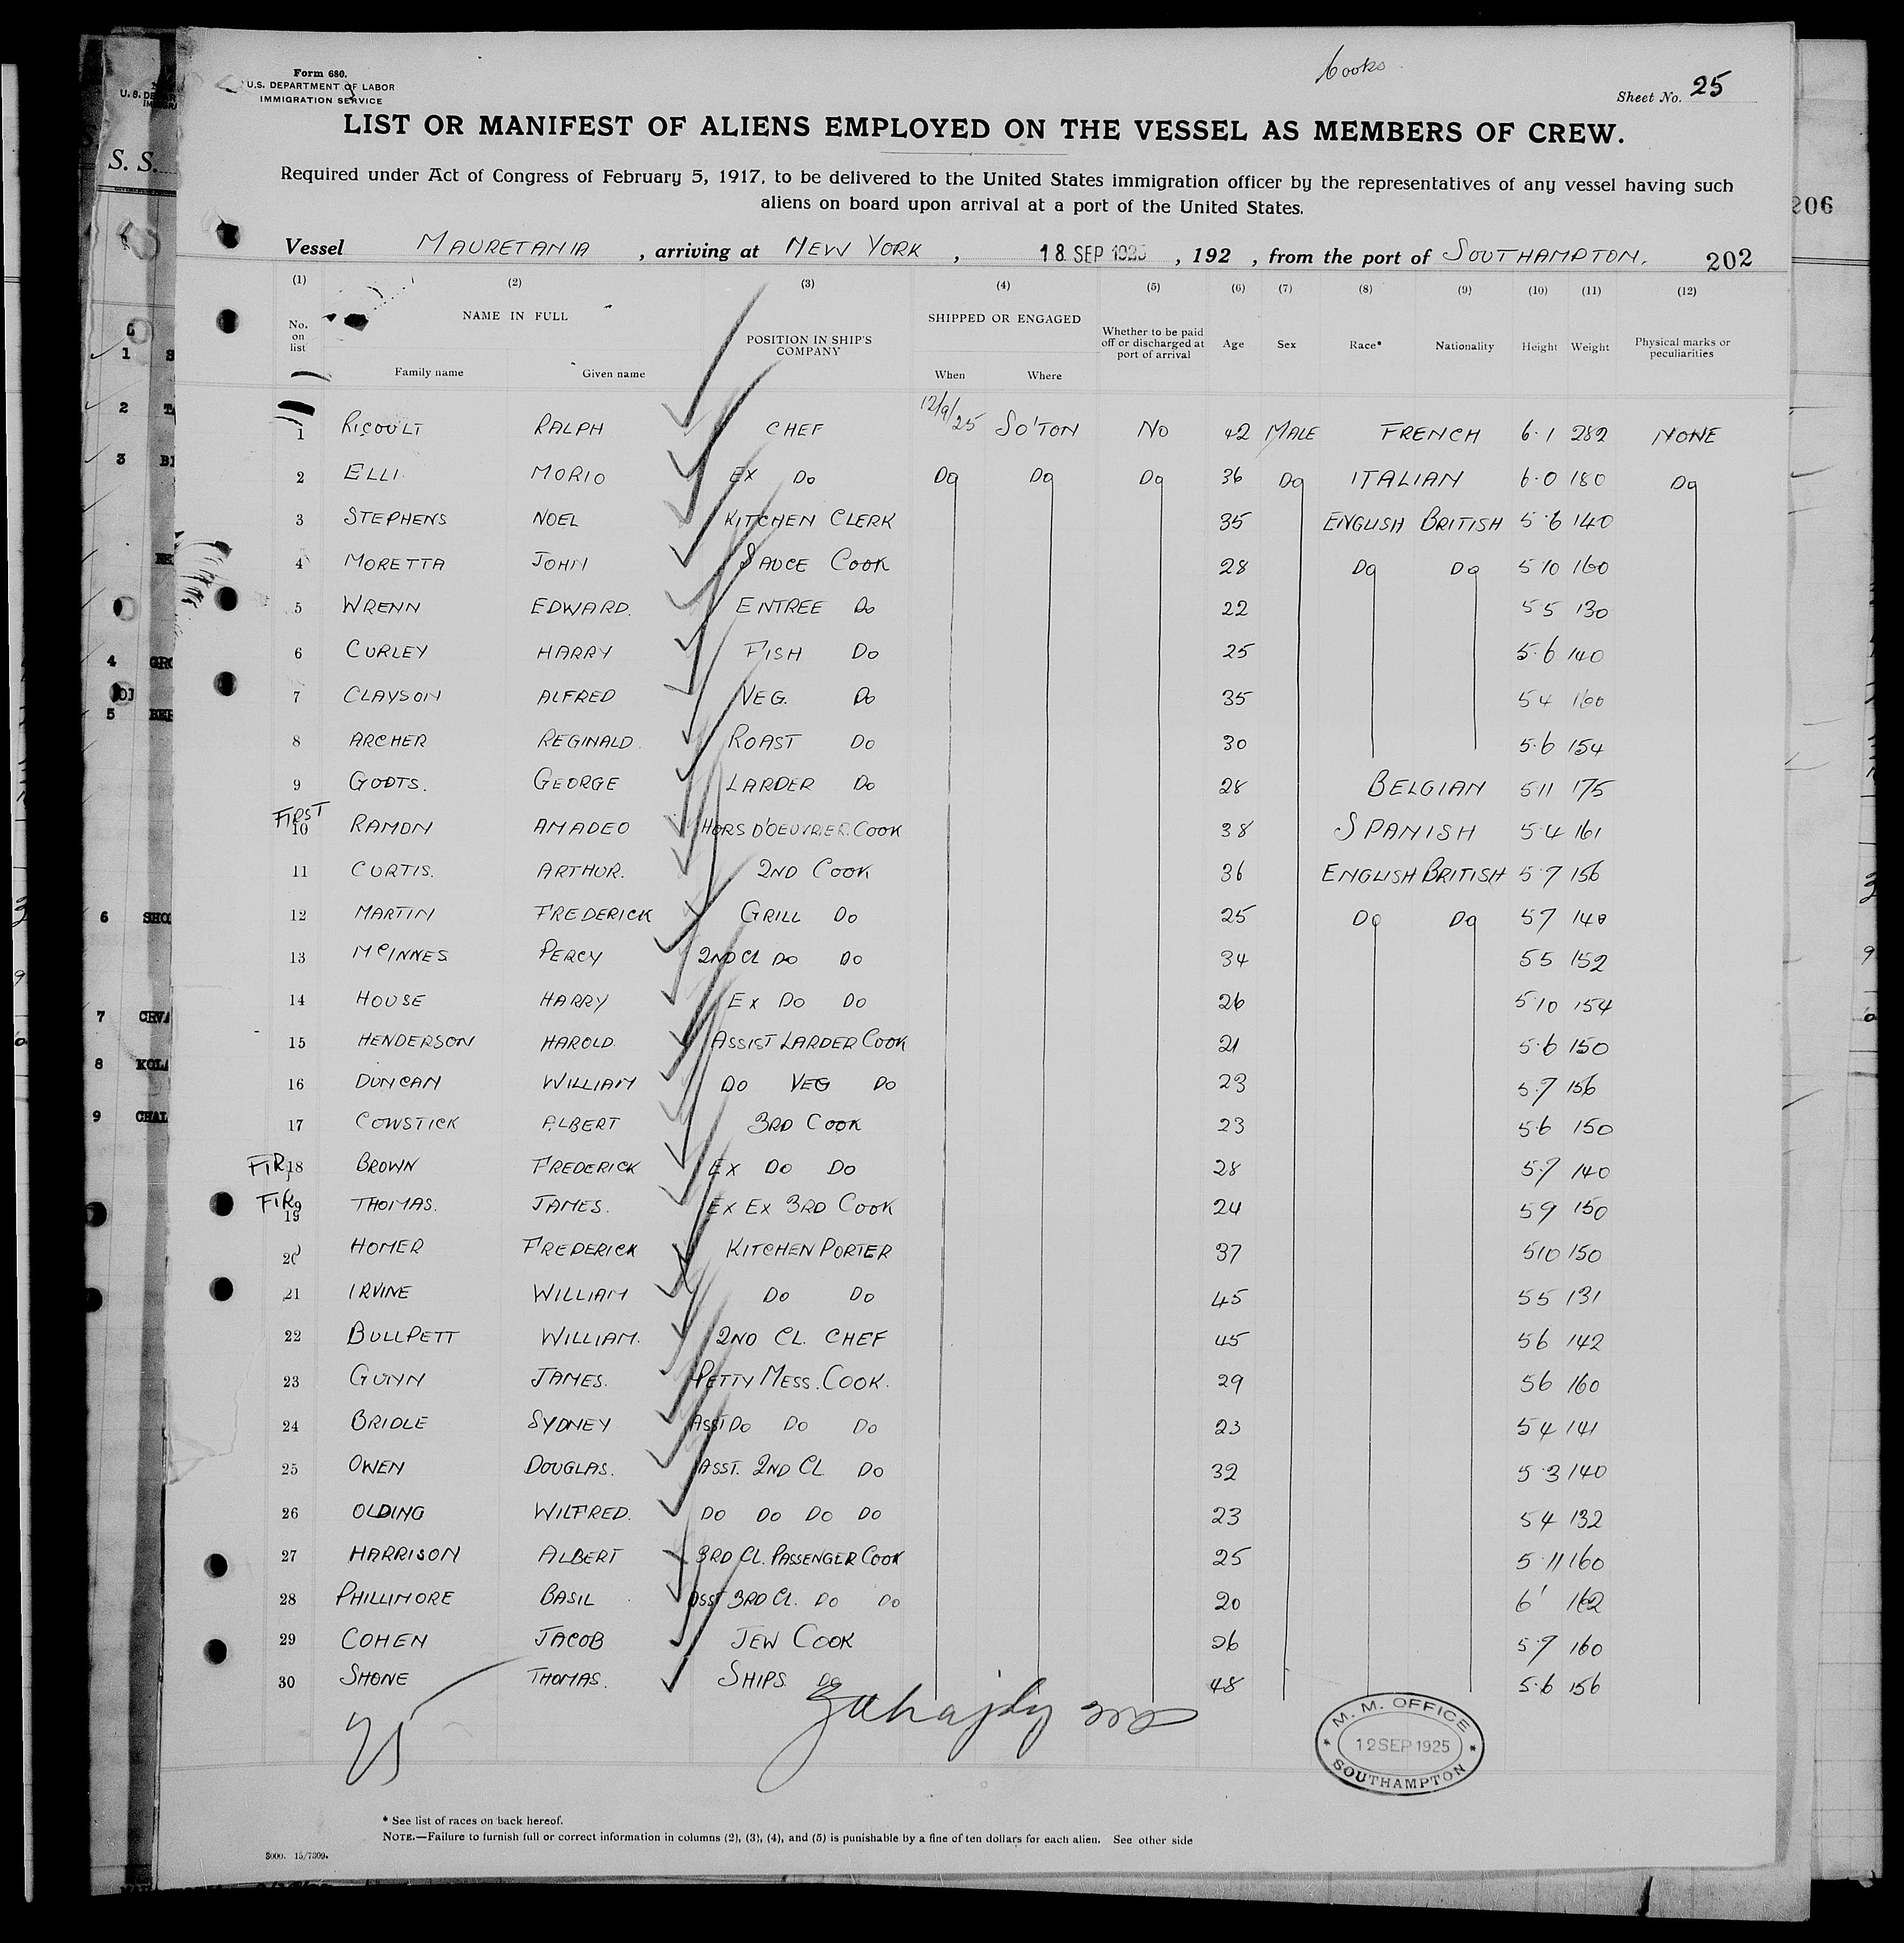 Form 680.
U.S. DEPARTMENT OF LABOR
IMMIGRATION SERVICE
Cooks
Sheet No. 25
LIST OR MANIFEST OF ALIENS EMPLOYED ON THE VESSEL AS MEMBERS OF CREW.
Required under Act of Congress of February 5, 1917, to be delivered to the United States immigration officer by the representatives of any vessel having such
aliens on board upon arrival at a port of the United States.
Vessel MAURETANIA, arriving at NEW YORK, 18 SEP 1925, 192 , from the port of SOUTHAMPTON. 202
(1) (2) (3) (4) (5) (6) (7) (8) (9) (10) (11) (12)
No. on list NAME IN FULL Family name Given name POSITION IN SHIP'S COMPANY SHIPPED OR ENGAGED When Where Whether to be paid off or discharged at port of arrival Age Sex Race* Nationality Height Weight Physical marks or peculiarities
1 RICOULT RALPH CHEF 12/9/25 SO'TON NO 42 MALE FRENCH 6.1 282 NONE
2 ELLI MORIO EX DO DO DO DO 36 DO ITALIAN 6.0 180 DO
3 STEPHENS NOEL KITCHEN CLERK 35 ENGLISH BRITISH 5.6 140
4 MORETTA JOHN SAUCE COOK 28 DO DO 5 10 160
5 WRENN EDWARD. ENTREE DO 22 5 5 130
6 CURLEY HARRY FISH DO 25 5.6 140
7 CLAYSON ALFRED VEG. DO 35 5 4 160
8 ARCHER REGINALD. ROAST DO 30 5.6 154
9 GODTS. GEORGE LARDER DO 28 BELGIAN 5 11 175
FIRST
10 RAMON AMADEO HORS D'OEUVRIER. COOK 38 SPANISH 5.4 161
11 CURTIS. ARTHUR. 2ND COOK 36 ENGLISH BRITISH 5.7 156
12 MARTIN FREDERICK GRILL DO 25 DO DO 5 7 140
13 MCINNES PERCY 2ND CL DO DO 34 5 5 152
14 HOUSE HARRY EX DO DO 26 5.10 154
15 HENDERSON HAROLD. ASSIST LARDER COOK 21 5.6 150
16 DUNCAN WILLIAM DO VEG DO 23 5.7 156
17 COWSTICK ALBERT 3RD COOK 23 5.6 150
18 BROWN FREDERICK EX DO DO 28 5.7 140
19 THOMAS. JAMES. EX EX 3RD COOK 24 5 9 150
20 HOMER FREDERICK KITCHEN PORTER 37 5 10 150
21 IRVINE WILLIAM DO DO 45 5 5 131
22 BULLPETT WILLIAM. 2ND CL. CHEF 45 5 6 142
23 GUNN JAMES. PETTY MESS. COOK. 29 5 6 160
24 BRIDLE SYDNEY ASST DO DO DO 23 5 4 141
25 OWEN DOUGLAS. ASST. 2ND CL DO 32 5.3 140
26 OLDING WILFRED. DO DO DO DO 23 5 4 132
27 HARRISON ALBERT 3RD CL. PASSENGER COOK 25 5.11 160
28 PHILLIMORE BASIL ASST 3RD CL. DO DO 20 6' 162
29 COHEN JACOB JEW COOK 26 5.7 160
30 SHONE THOMAS. SHIPS DO 48 5.6 156
M. M. OFFICE
12 SEP 1925
SOUTHAMPTON
* See list of races on back hereof.
NOTE.—Failure to furnish full or correct information in columns (2), (3), (4), and (5) is punishable by a fine of ten dollars for each alien. See other side
5000. 15/7309.